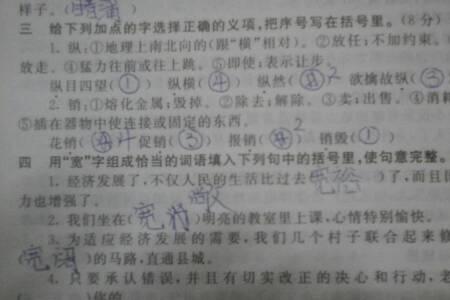 样子。(
三 给下列加点的字选择正确的义项,把序号写在括号里。(8分)
1. 纵:①地理上南北向的(跟“横”相对)。②放任;不加约束。
放走。④猛力往前或往上跳。⑤即使;表示让步。
纵目四望(①) 纵横(④) 纵然( 2 欲擒故纵(③
2. 销:①熔化金属;毁掉。②除去;解除。③卖;出售。④消耗
⑤插在器物中使连接或固定的东西。
花销( 4 促销(③) 报销( 2 销毁(①)
四 用“宽”字组成恰当的词语填入下列句中的括号里,使句意完整。
1. 经济发展了,不仅人民的生活比过去 宽裕 )了,而且
力也增强了。
2. 我们坐在(宽敞)明亮的教室里上课,心情特别愉快。
3. 为适应经济发展的需要,我们几个村子联合起来修
宽阔)的马路,直通县城。
4. 只要承认错误,并且有切实改正的决心和行动,老
)你的